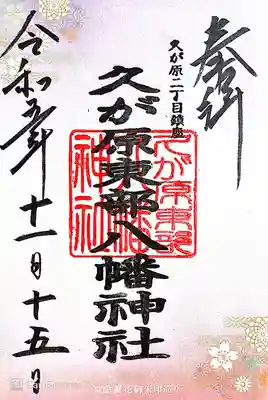 奉拝
久が原二丁目鎮座
久が原東部八幡神社
久が原東部
八幡
神社
令和五年 十一月十五日